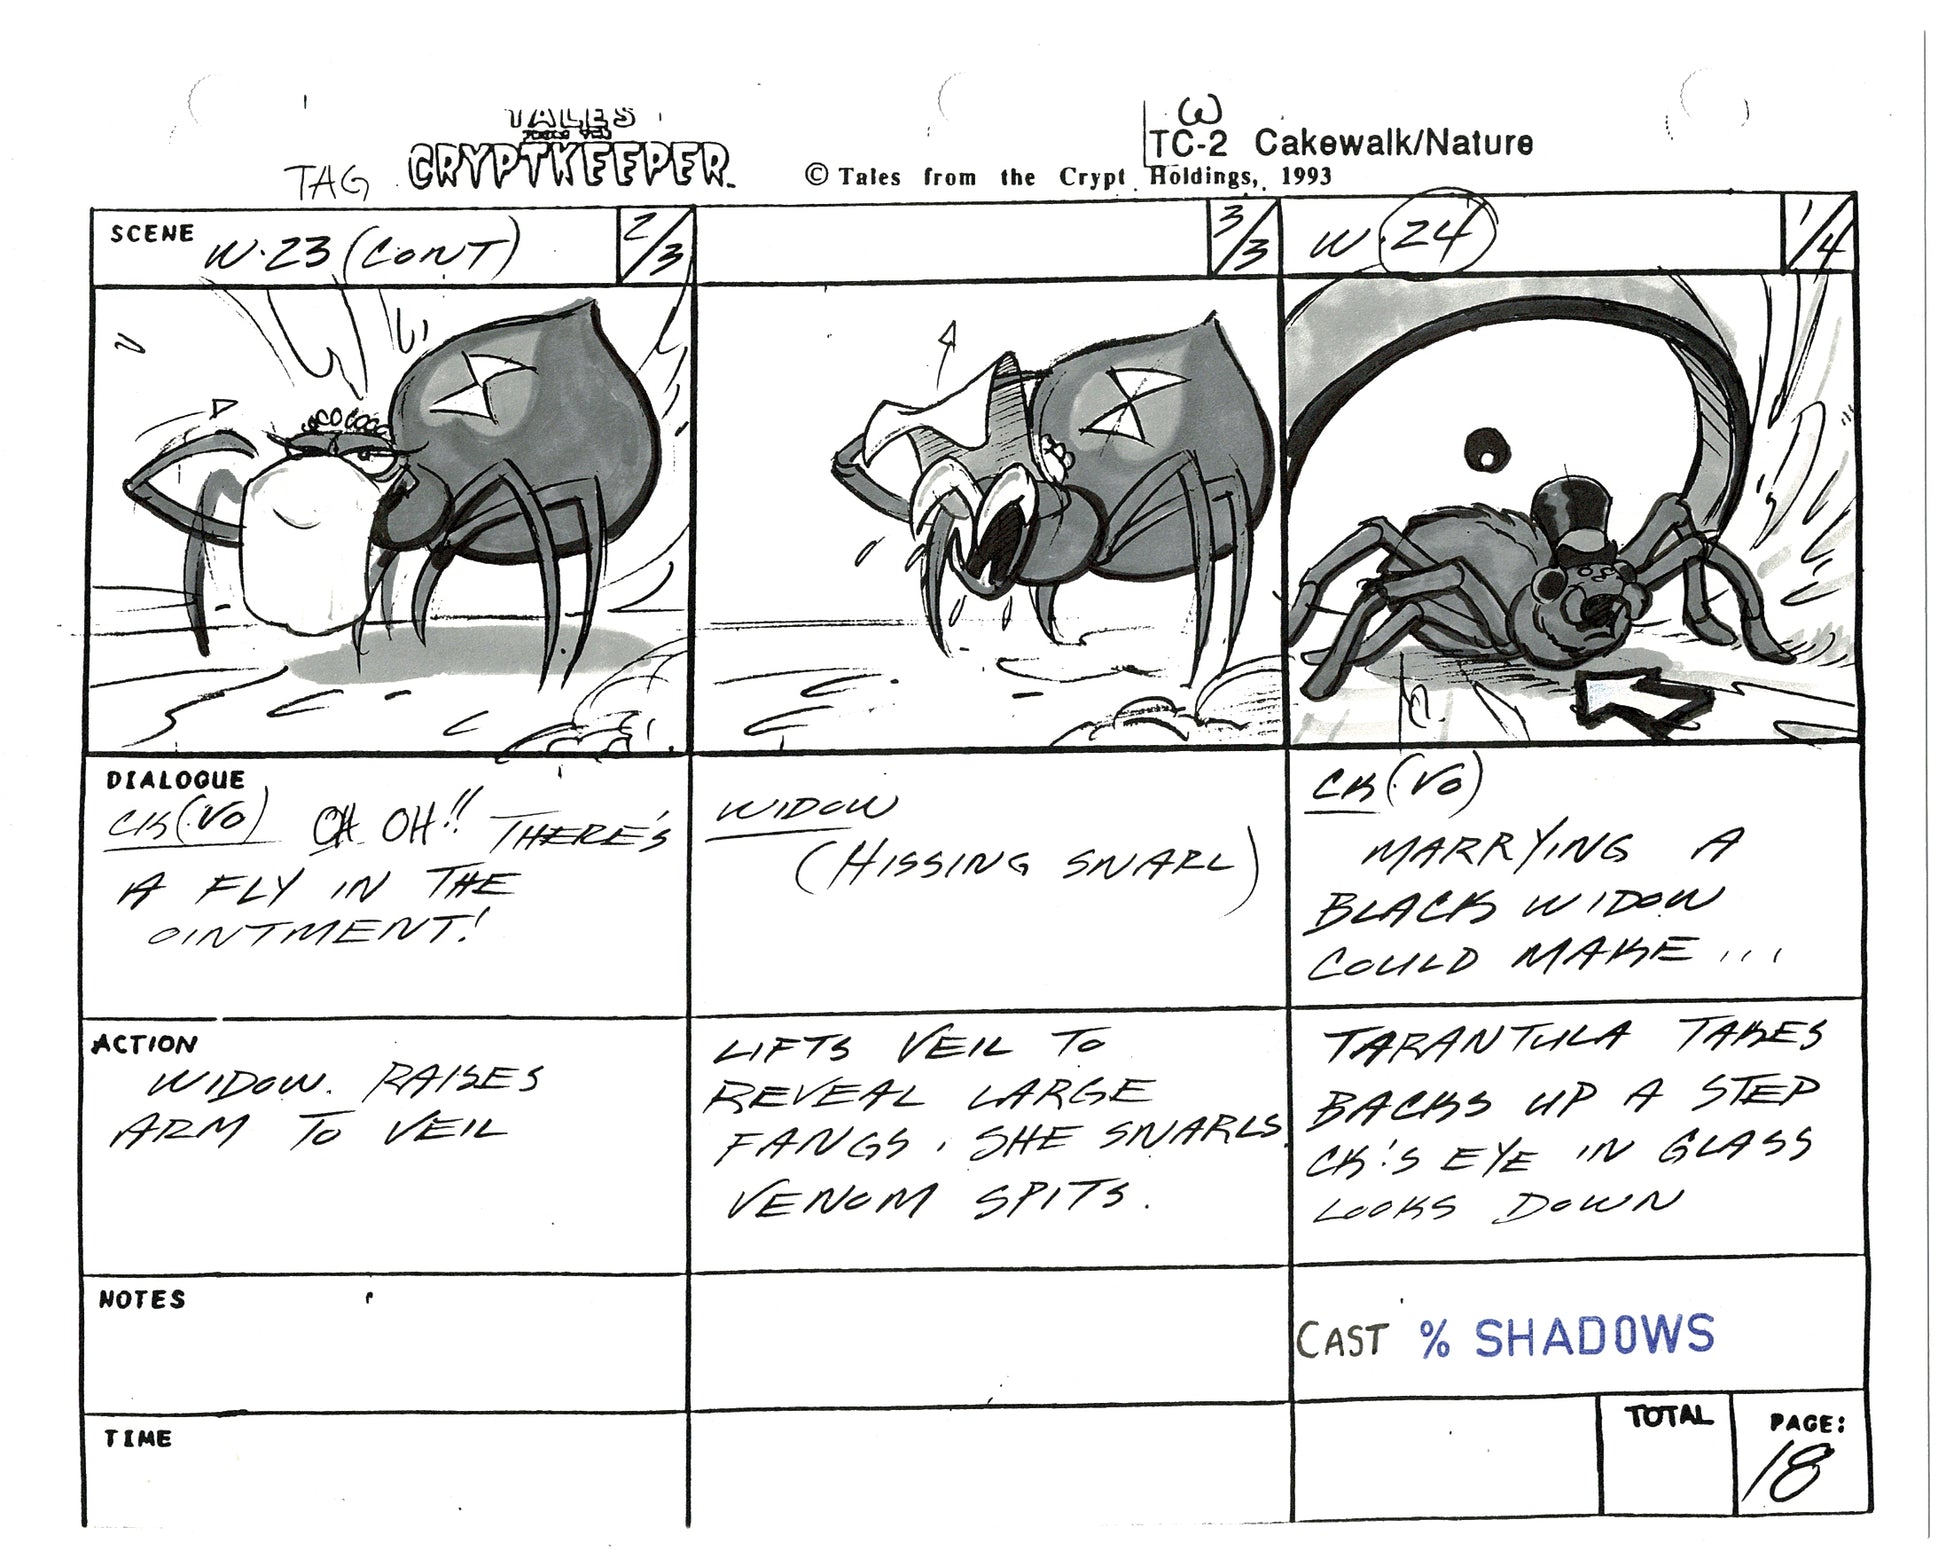 TALES
FROM THE
CRYPTKEEPER
TAG
W
TC-2 Cakewalk/Nature
© Tales from the Crypt Holdings, 1993
SCENE W.23 (CONT) 2/3
3/3
W.24 1/4
DIALOGUE
CK (VO) OH OH!! THERE'S
A FLY IN THE
OINTMENT!
WIDOW
(HISSING SNARL)
CK (VO)
MARRYING A
BLACK WIDOW
COULD MAKE ...
ACTION
WIDOW. RAISES
ARM TO VEIL
LIFTS VEIL TO
REVEAL LARGE
FANGS. SHE SNARLS.
VENOM SPITS.
TARANTULA TAKES
BACKS UP A STEP
CK'S EYE IN GLASS
LOOKS DOWN
NOTES
CAST % SHADOWS
TIME
TOTAL
PAGE:
18